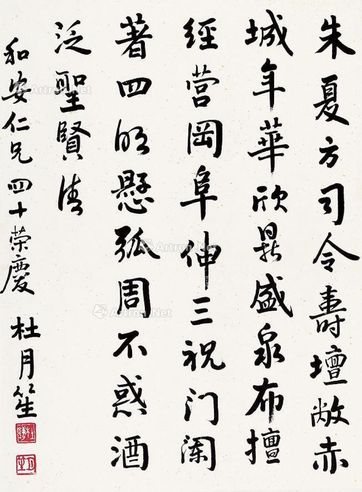 朱夏方司令壽壇敞赤
城年華欣鼎盛泉布擅
經营岡阜伸三祝门闌
著四明懸弧周不惑酒
泛聖賢清
和安仁兄四十荣慶 杜月笙